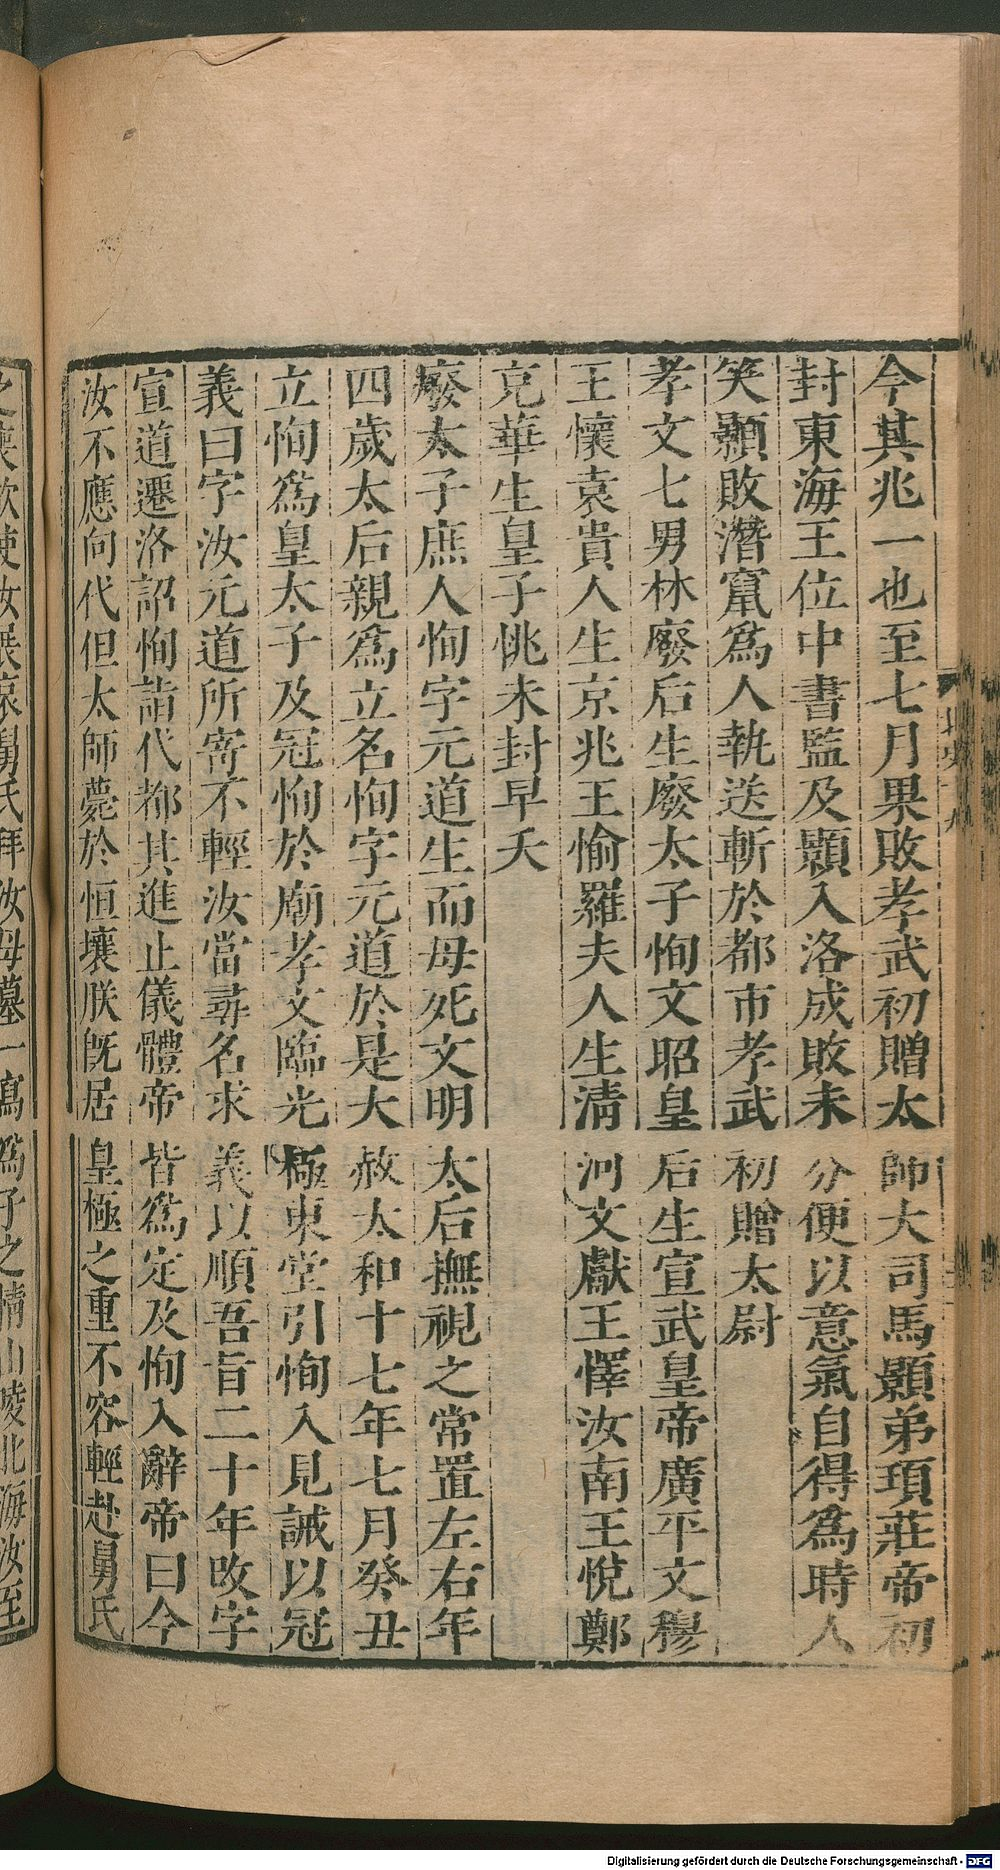 今其兆一也至七月果敗孝武初贈太師大司馬顥弟頊莊帝初
封東海王位中書監及顥入洛成敗未分便以意氣自得爲時人
笑顥敗潛竄爲人執送斬於都市孝武初贈太尉
孝文七男林廢后生廢太子恂文昭皇后生宣武皇帝廣平文穆
王懷袁貴人生京兆王愉羅夫人生淸河文獻王懌汝南王悅鄭
充華生皇子恌未封早夭
廢太子庶人恂字元道生而母死文明太后撫視之常置左右年
四歲太后親爲立名恂字元道於是大赦太和十七年七月癸丑
立恂爲皇太子及冠恂於廟孝文臨光極東堂引恂入見誡以冠
義曰字汝元道所寄不輕汝當尋名求義以順吾旨二十年改字
宣道遷洛詔恂詣代都其進止儀體帝皆爲定及恂入辭帝曰今
汝不應向代但太師薨於恒壤朕旣居皇極之重不容輕赴舅氏
之喪欲使汝展哀舅氏拜汝母墓一寫爲子之情山陵北海汝至
Digitalisierung gefördert durch die Deutsche Forschungsgemeinschaft - DFG